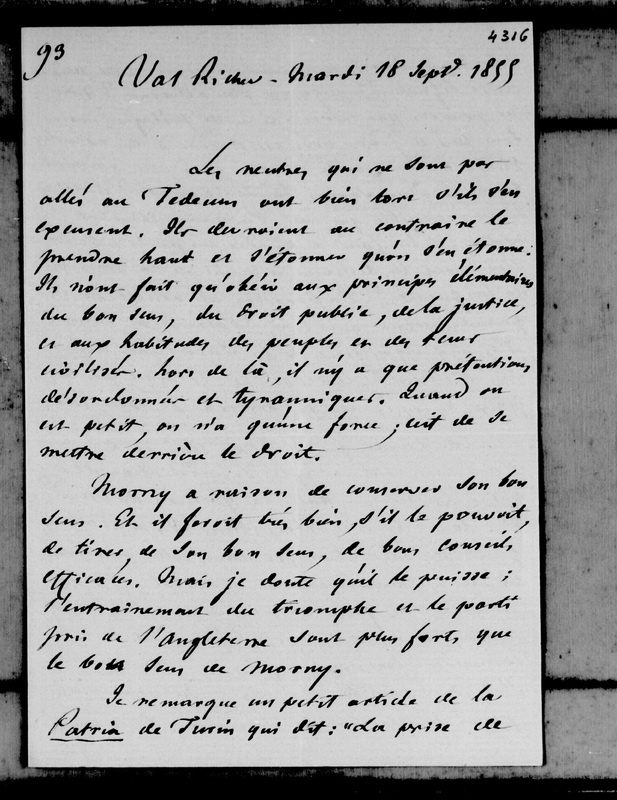 93
4316
Val Richer - Mardi 18 Sept. 1855
Les neutres qui ne sont pas
allés au Tedeum ont bien tort s'ils s'en
excusent. Ils devroient au contraire le
prendre haut et s'étonner qu'on s'en étonne.
Ils n'ont fait qu'obéir aux principes élémentaires
du bon sens, du droit public, de la justice,
et aux habitudes des peuples et des tems
civilisés. hors de là, il n'y a que prétentions
désordonnées et tyranniques. Quand on
est petit, on n'a qu'une force ; c'est de se
mettre derrière le droit.
Morny a raison de conserver son bon
sens. Et il feroit très bien, s'il le pouvoit,
de tirer, de son bon sens, de bons conseils
efficaces. Mais je doute qu'il le puisse ;
l'entrainement du triomphe et le parti
pris de l'Angleterre sont plus forts que
le bon sens de Morny.
Je remarque un petit article de la
Patria de Turin qui dit : "La prise de